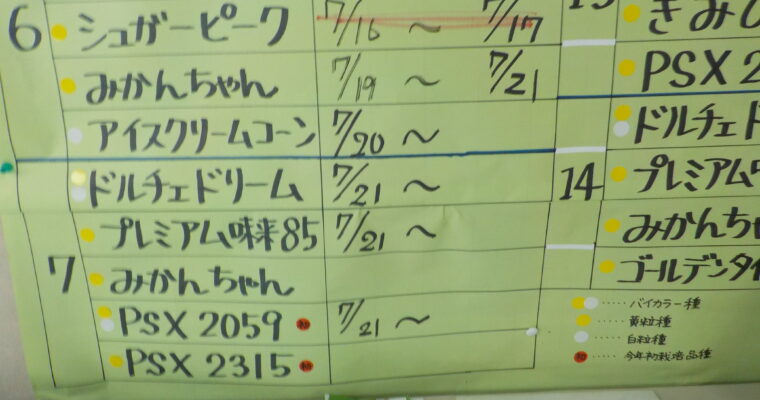 6 シュガーピーク 7/16 ～ 7/17
みかんちゃん 7/19 ～ 7/21
アイスクリームコーン 7/20 ～
ドルチェドリーム 7/21 ～
プレミアム味来85 7/21 ～
7 みかんちゃん
PSX 2059 初 7/21 ～
PSX 2315 初
PSX 2
ドルチェド
14 プレミアム
みかんちゃ
ゴールデン
……バイカラー種
……黄粒種
……白粒種
初……今年初栽培品種